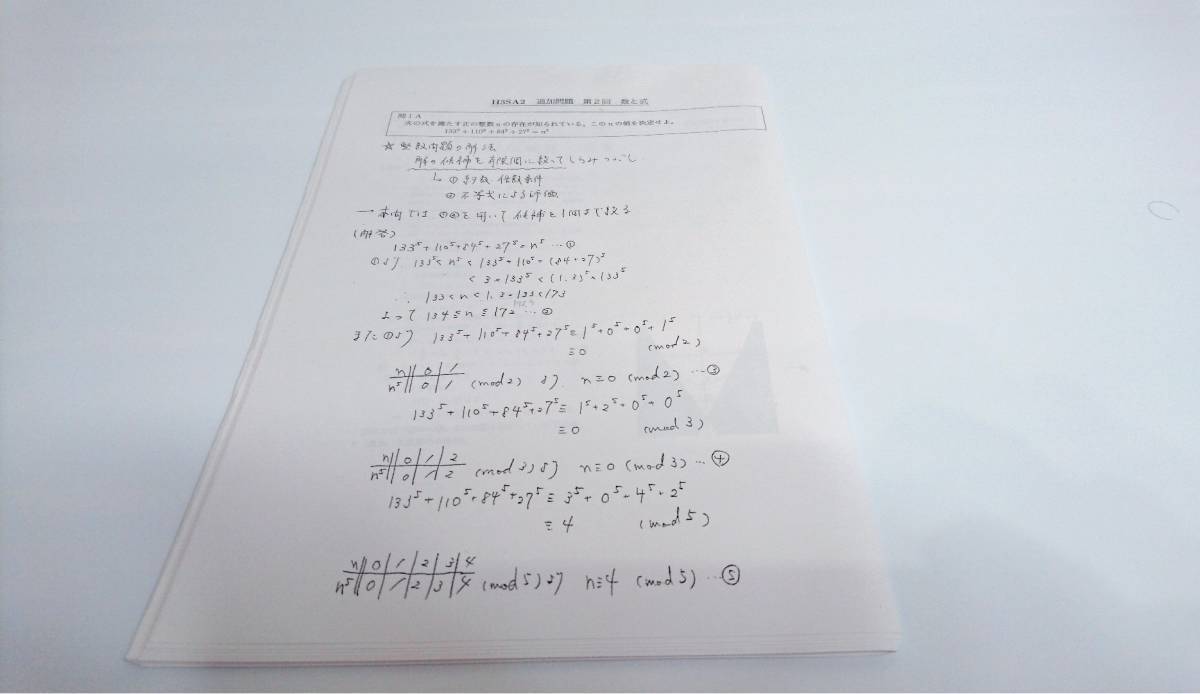 H3SA2 追加問題 第2回 数と式
問1A
次の式を満たす正の整数nの存在が知られている。このnの値を決定せよ。
133⁵+110⁵+84⁵+27⁵=n⁵
☆ 整数問題の解法
解の候補を有限個に絞ってしらみつぶし
① 約数・倍数条件
② 不等式による評価
→ 本問では ①②を用いて 候補を1個まで絞る
(解答)
133⁵+110⁵+84⁵+27⁵=n⁵ …①
①より 133⁵<n⁵<133⁵+110⁵+(84+27)⁵
<3・133⁵<(1.3)⁵・133⁵
∴ 133<n<1.3・133<173
よって 134≦n≦172 …②
また①より 133⁵+110⁵+84⁵+27⁵≡1⁵+0⁵+0⁵+1⁵
≡0 (mod2)
n 0 1
n⁵ 0 1 (mod2) より n≡0 (mod2) …③
133⁵+110⁵+84⁵+27⁵≡1⁵+2⁵+0⁵+0⁵
≡0 (mod3)
n 0 1 2
n⁵ 0 1 2 (mod3)より n≡0 (mod3) …④
133⁵+110⁵+84⁵+27⁵≡3⁵+0⁵+4⁵+2⁵
≡4 (mod5)
n 0 1 2 3 4
n⁵ 0 1 2 3 4 (mod5)より n≡4 (mod5) …⑤